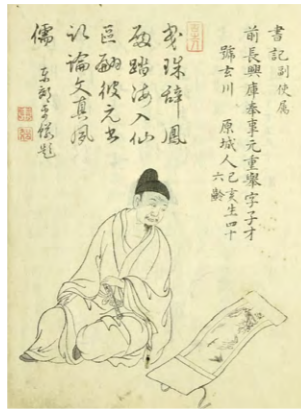 書記副使属
前長興庫奉事元重擧字子才
號玄川 原城人己亥生四十
六齡
曳珠辭鳳
殿踏海入仙
區翩彼元書
記論文真夙
儒
東都平鱗題